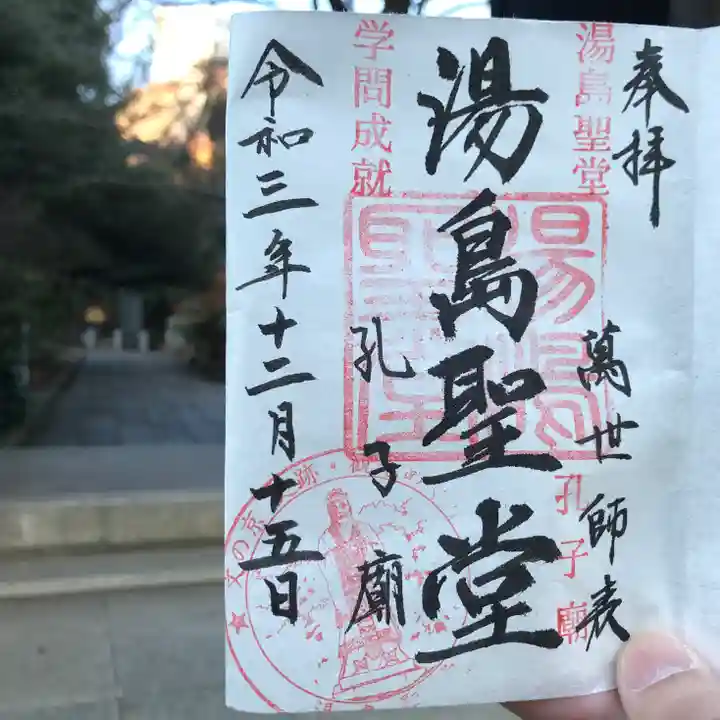 奉拝
萬世師表
湯島聖堂
孔子廟
湯島聖堂
湯島聖堂
孔子廟
学問成就
令和三年十二月十五日